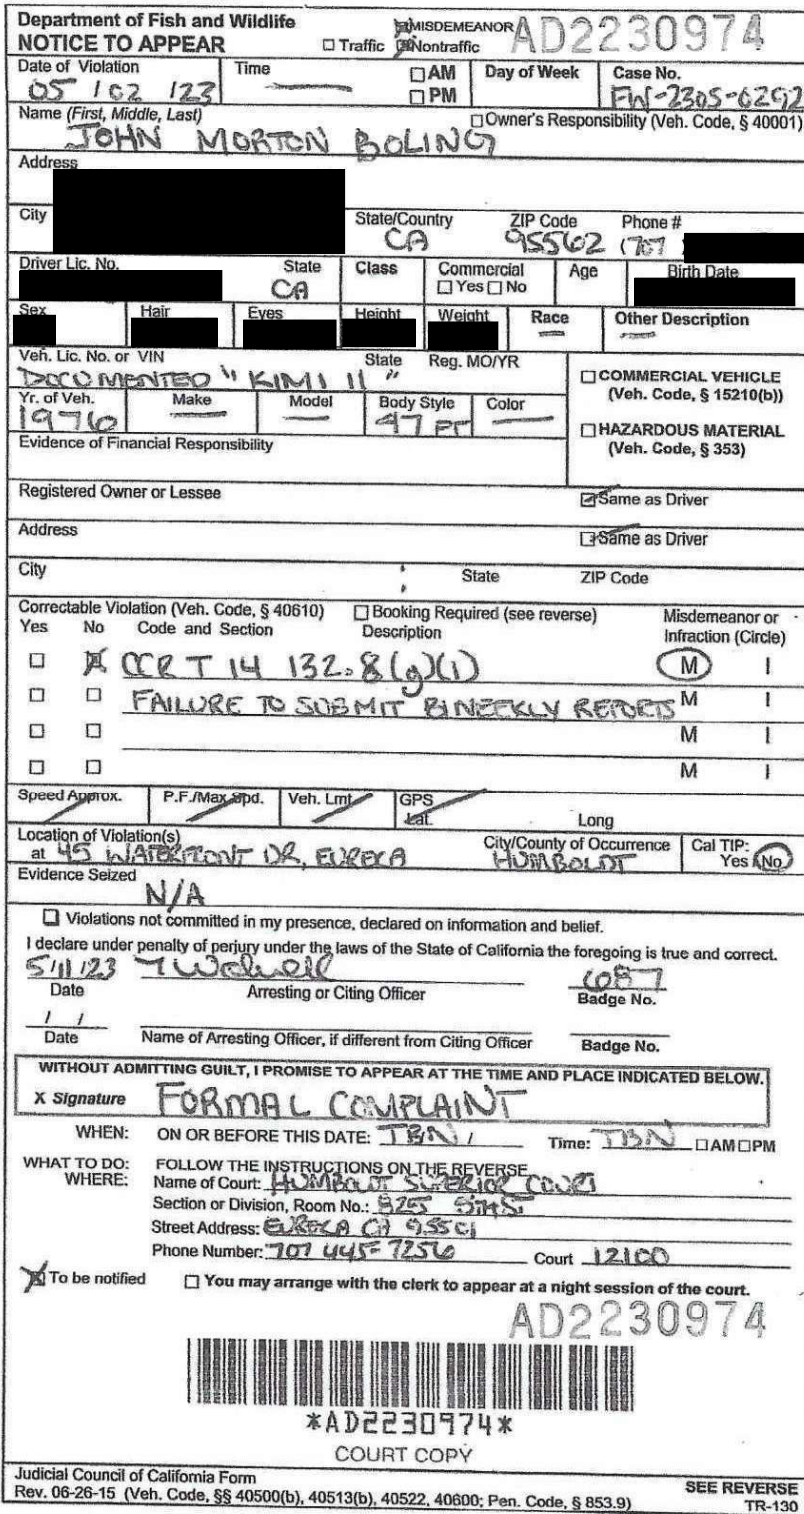 Department of Fish and Wildlife
NOTICE TO APPEAR
MISDEMEANOR
Traffic Nontraffic
AD2230974
Date of Violation Time AM PM Day of Week Case No.
05 / 02 / 23 FW-2305-0292
Name (First, Middle, Last) Owner's Responsibility (Veh. Code, § 40001)
JOHN MORTON BOLING
Address
City State/Country ZIP Code Phone #
CA 95562 (707
Driver Lic. No. State Class Commercial Age Birth Date
CA Yes No
Sex Hair Eyes Height Weight Race Other Description
Veh. Lic. No. or VIN State Reg. MO/YR
DOCUMENTED "KIMI II"
COMMERCIAL VEHICLE
(Veh. Code, § 15210(b))
Yr. of Veh. Make Model Body Style Color
1976 47 FT
HAZARDOUS MATERIAL
(Veh. Code, § 353)
Evidence of Financial Responsibility
Registered Owner or Lessee Same as Driver
Address Same as Driver
City State ZIP Code
Correctable Violation (Veh. Code, § 40610) Booking Required (see reverse) Misdemeanor or
Yes No Code and Section Description Infraction (Circle)
CCR T 14 132.8(g)(1) M I
FAILURE TO SUBMIT BIWEEKLY REPORTS M I
M I
M I
Speed Approx. P.F./Max Spd. Veh. Lmt. GPS
Lat. Long
Location of Violation(s) City/County of Occurrence Cal TIP:
at 45 WATERFRONT DR, EUREKA HUMBOLDT Yes No
Evidence Seized
N/A
Violations not committed in my presence, declared on information and belief.
I declare under penalty of perjury under the laws of the State of California the foregoing is true and correct.
5/11/23 687
Date Arresting or Citing Officer Badge No.
/ /
Date Name of Arresting Officer, if different from Citing Officer Badge No.
WITHOUT ADMITTING GUILT, I PROMISE TO APPEAR AT THE TIME AND PLACE INDICATED BELOW.
X Signature FORMAL COMPLAINT
WHEN: ON OR BEFORE THIS DATE: TBN / Time: TBN AM PM
WHAT TO DO: FOLLOW THE INSTRUCTIONS ON THE REVERSE
WHERE: Name of Court: HUMBOLDT SUPERIOR COURT
Section or Division, Room No.: 825 5TH ST
Street Address: EUREKA CA 95501
Phone Number: 707 445-7256 Court 12100
To be notified You may arrange with the clerk to appear at a night session of the court.
AD2230974
*AD2230974*
COURT COPY
Judicial Council of California Form
Rev. 06-26-15 (Veh. Code, §§ 40500(b), 40513(b), 40522, 40600; Pen. Code, § 853.9)
SEE REVERSE
TR-130